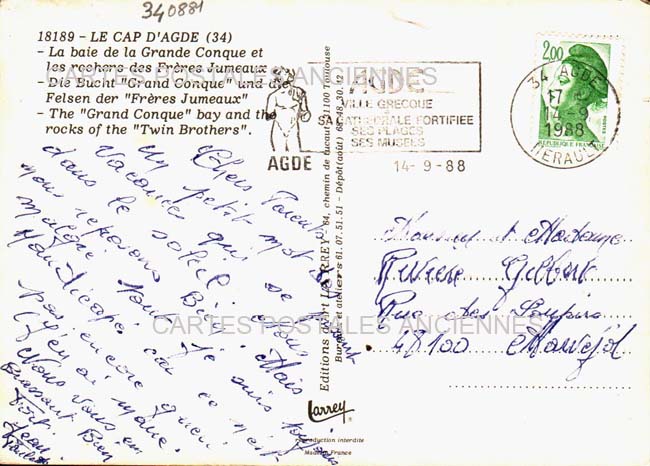 340881
18189 - LE CAP D'AGDE (34)
- La baie de la Grande Conque et
les rochers des Frères Jumeaux
- Die Bucht "Grand Conque" und die
Felsen der "Frères Jumeaux"
- The "Grand Conque" bay and the
rocks of the "Twin Brothers".
CARTES POSTALES ANCIENNES
AGDE
AGDE
VILLE GRECQUE
SA CATHEDRALE FORTIFIEE
SES PLAGES
SES MUSEES
14-9-88
34 AGDE
17 H
14-9
1988
HERAULT
2,00
REPUBLIQUE FRANÇAISE
Chers Parents
Un petit mot de
Vacances qui se font
dans le soleil. Nous
nous reposons Bien. Mais
malgré tout je suis toujours
handicapé car ce n'est
pas encore guéri.
j'y ai mal.
Nous vous en
Brassant Bien
Fort.
Jean
Editions d'art LARREY - 84, chemin de Ducaut - 31100 Toulouse
Bureaux et ateliers 61.07.51.51 - Dépôt (adat) 68.48.20.12
Monsieur et Madame
Riviere Gilbert
Rue des Soupirs
48100 Marvejol
CARTES POSTALES ANCIENNES
Larrey
Reproduction interdite
Made in France